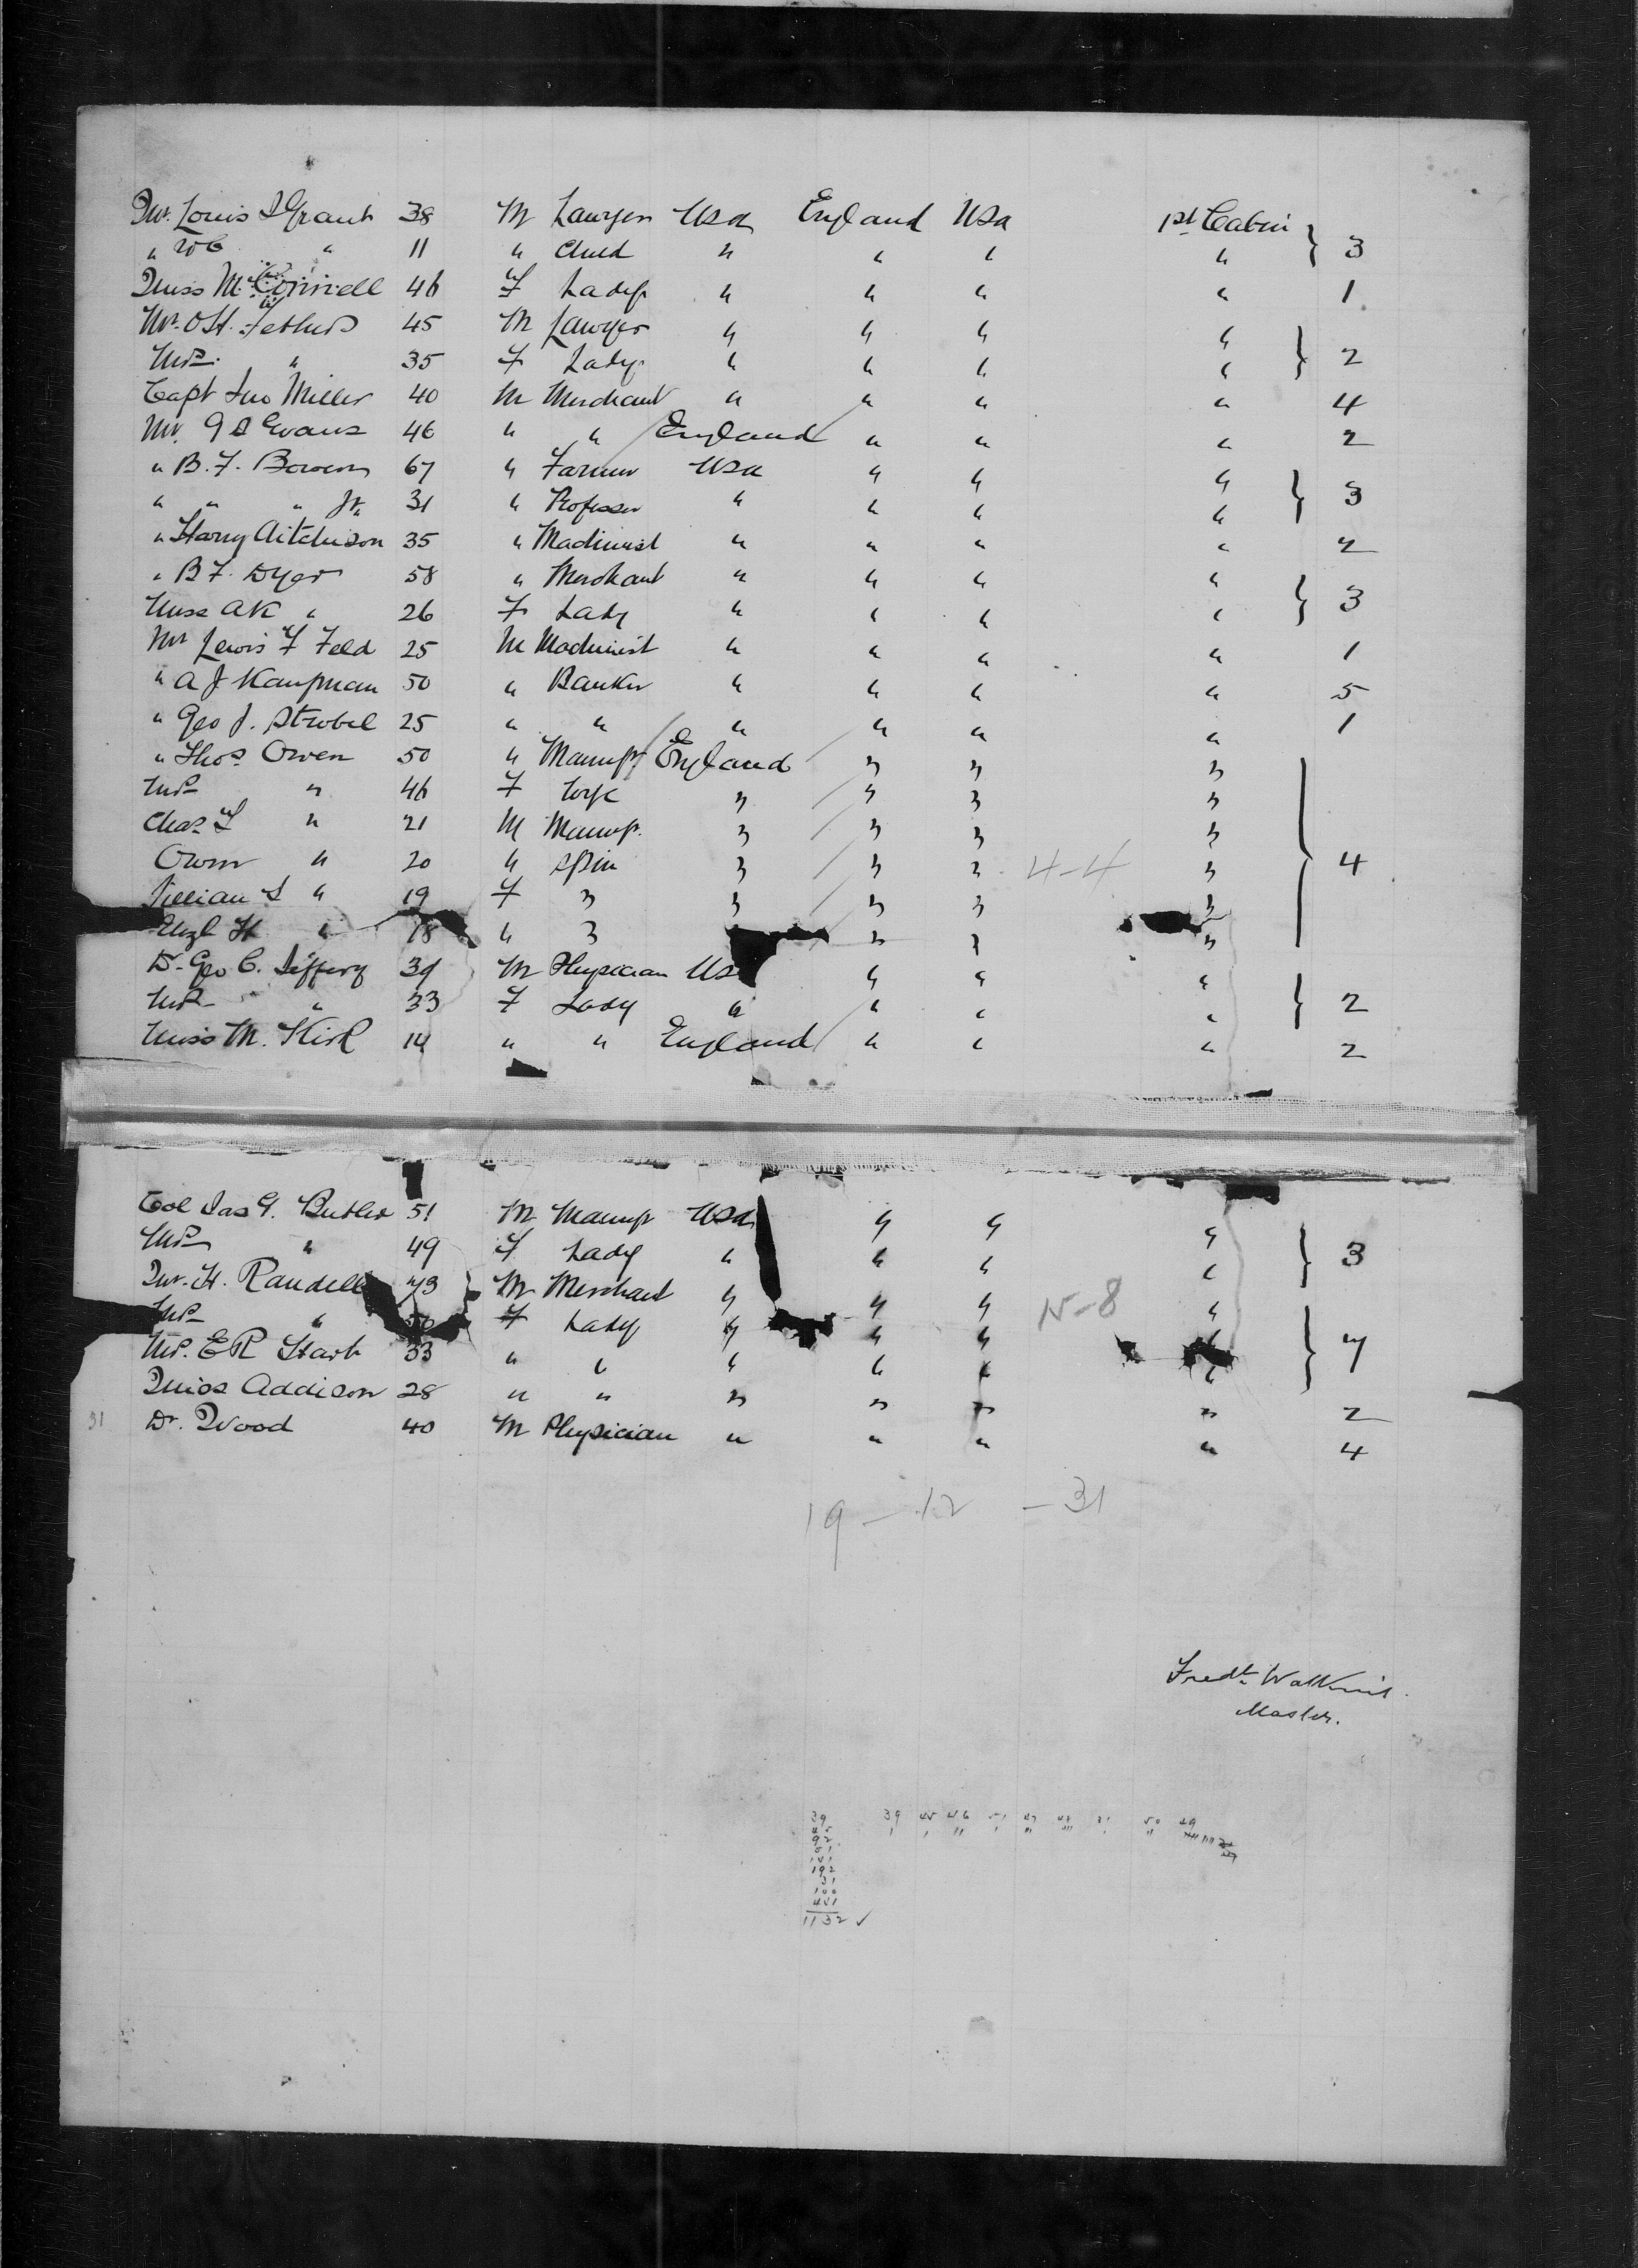 Mr. Louis S Grant 38 M Lawyer Usa England Usa 1st Cabin } 3
" W C " 11 " Child " " " "
Miss McConnell 46 F Lady " " " " 1
Mr. O H. Fethers 45 M Lawyer " " " " } 2
Mrs. " 35 F Lady " " " "
Capt Jno Miller 40 M Merchant " " " " 4
Mr. G S Evans 46 " " England " " " 2
" B. F. Bowen 67 " Farmer Usa " " " } 3
" " " Jr. 31 " Professor " " " "
" Harry Aitchison 35 " Machinist " " " " 2
" B F. Dyer 58 " Merchant " " " " } 3
Miss A K " 26 F Lady " " " "
Mr Lewis F Feld 25 M Machinist " " " " 1
" A J Kaufman 50 " Banker " " " " 5
" Geo J. Strobel 25 " " " " " " 1
" Thos. Owen 50 " Manufr England " " "
Mrs " 46 F Wife " " " "
Chas L " 21 M Manufr. " " " "
Owen " 20 " Spin " " " 4-4 " } 4
Lillian S " 19 F " " " " "
Elizh H " 18 " " " " "
Dr. Geo C. Jeffery 39 M Physician Us " " " } 2
Mrs " 33 F Lady " " " "
Miss M. Kirk 14 " " England " " " 2
Col Jas G. Butler 51 M Manufr Usa " " " } 3
Mrs " 49 F Lady " " " "
Mr. H. Randell 73 M Merchant " " " N-8 " } 7
Mrs " F Lady " " " "
Mrs. E R Stark 33 " " " " " "
Miss Addison 28 " " " " " " 2
31 Dr. Wood 40 M Physician " " " " 4
19 - 12 - 31
Fredk. Watkins.
Master.
39 45 46 51 47 48 31 50 49
39
45
92
51
141
192
31
100
441
1132 ✓